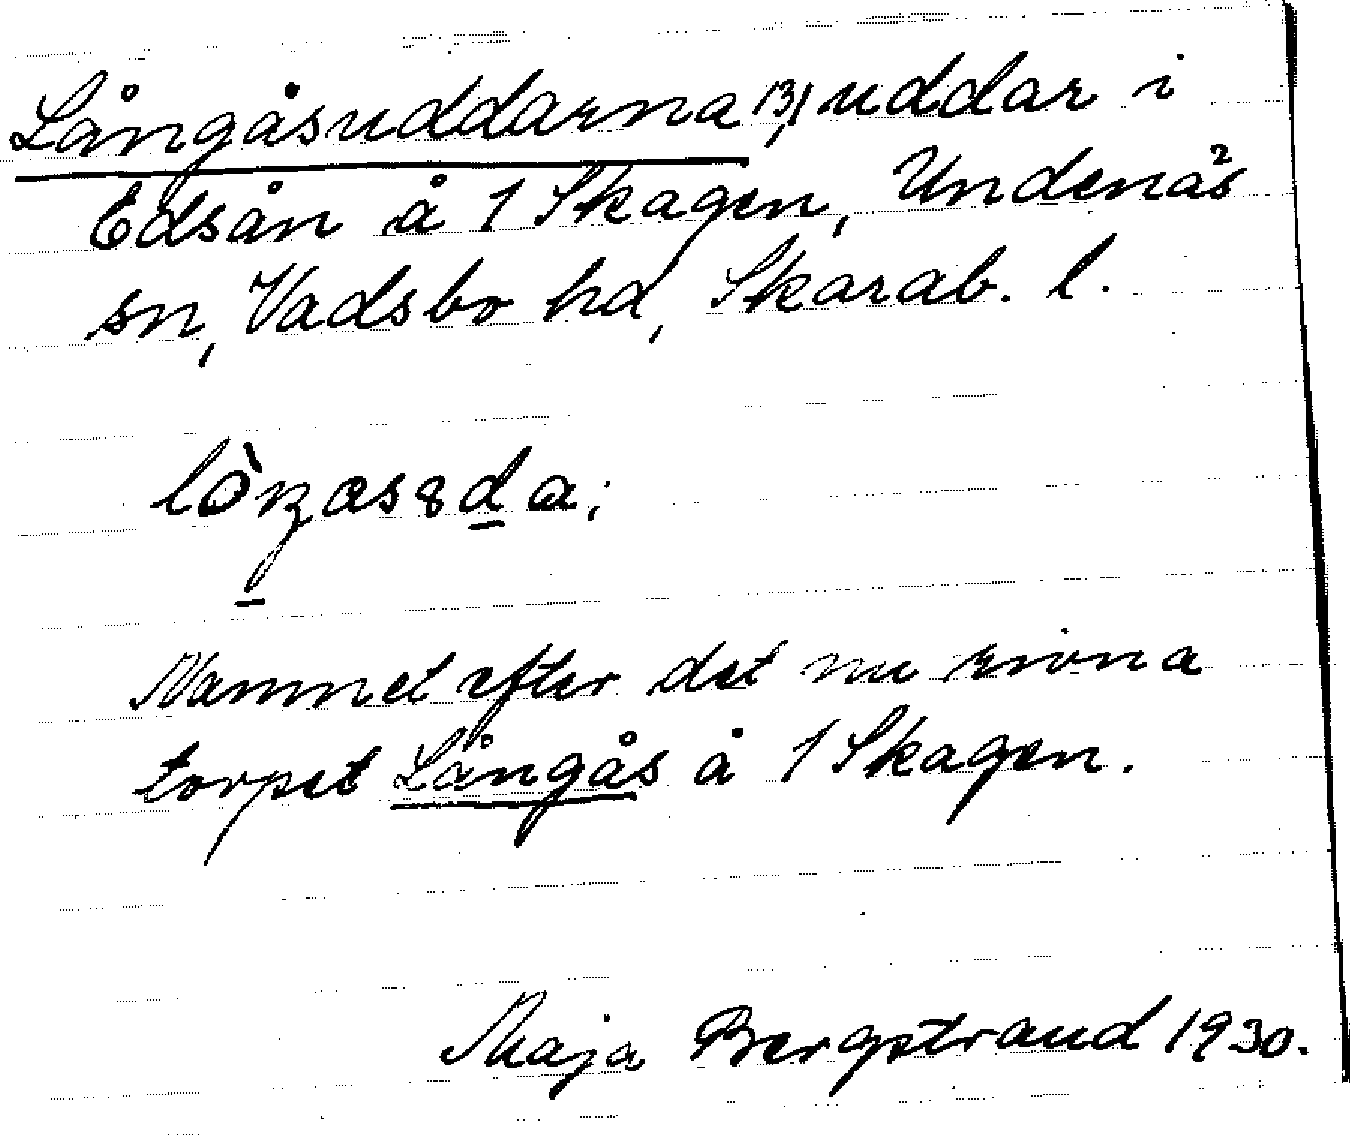 Långåsuddarna 13, uddar i
Edsån å 1 Skagen, Undenäs
sn, Vadsbo hd, Skarab. l.
Namnet efter det nu rivna
torpet Långås å 1 Skagen.
Maja Bergstrand 1930.